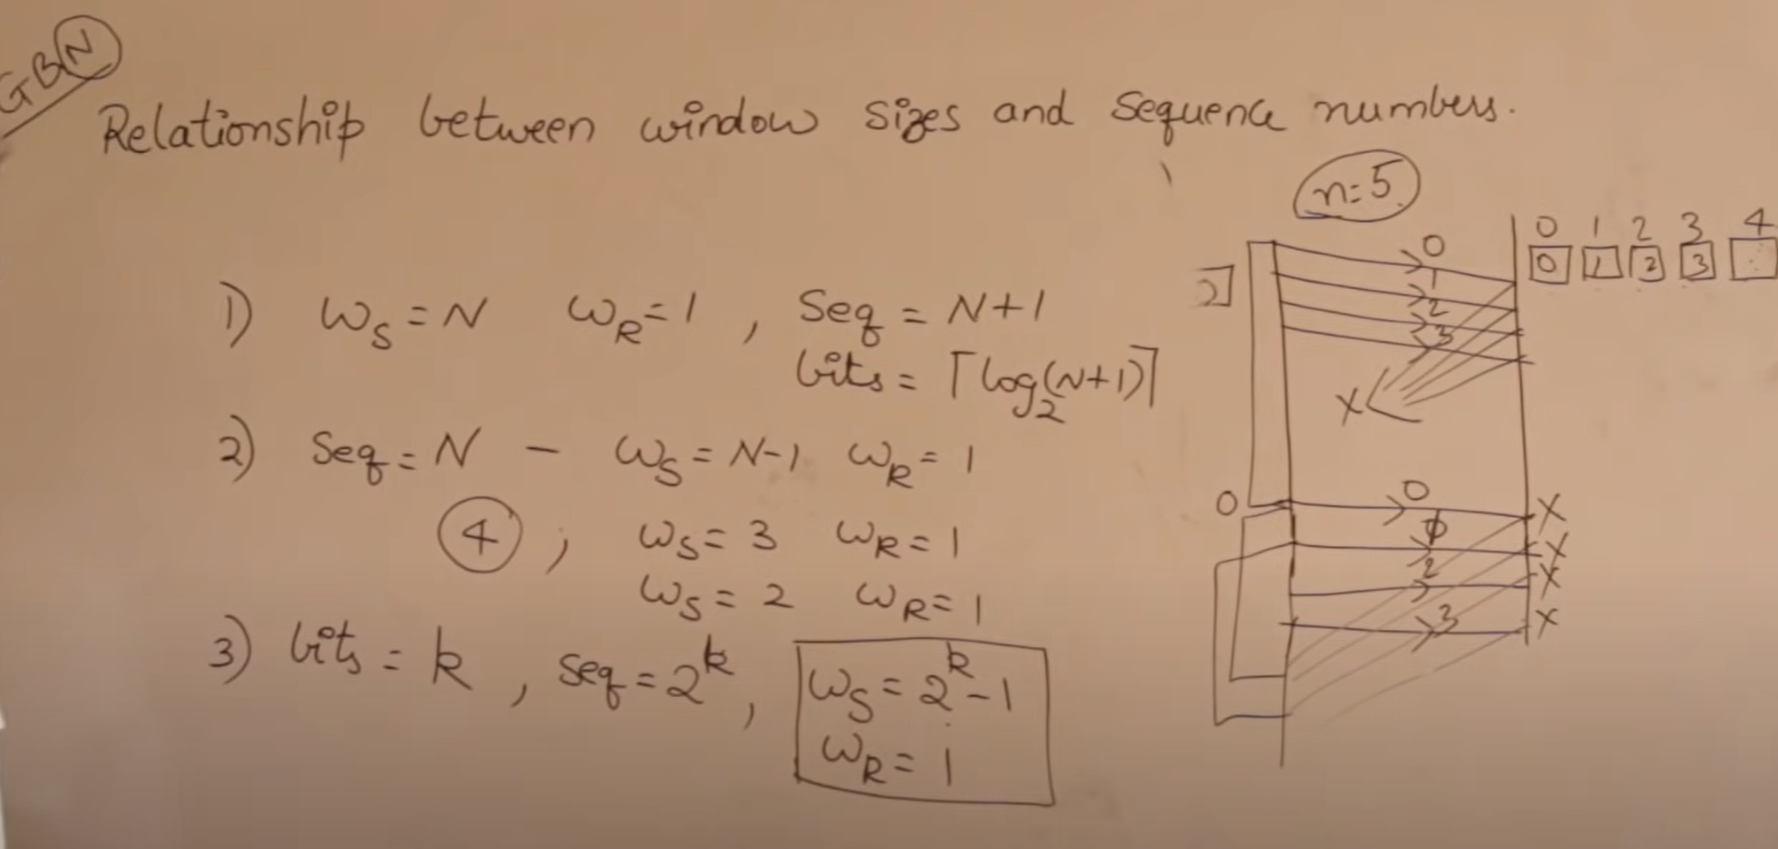 GBN
Relationship between window sizes and sequence numbers.
n=5
0 1 2 3 4
0 1 2 3
1) WS = N WR = 1 , Seq = N+1
bits = ⌈log2(N+1)⌉
2) Seq = N - WS = N-1 WR = 1
4 ; WS = 3 WR = 1
WS = 2 WR = 1
3) bits = k , seq = 2^k , WS = 2^k - 1
WR = 1
0
1
2
3
X
0 0 X
1 X
2 X
3 X